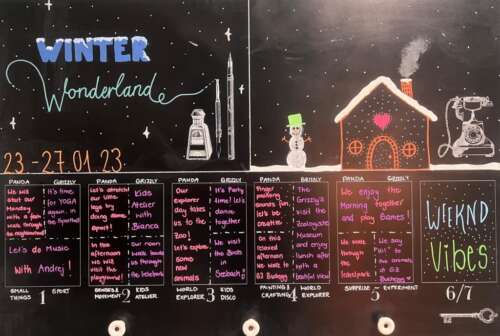 WINTER
Wonderland
23.-27.01.23.
PANDA GRIZZLY PANDA GRIZZLY PANDA GRIZZLY PANDA GRIZZLY
We will start our Monday with a fun walk through the neighbourhood
It's time for YOGA again. in the Sportshall
Let's do Music with Andrej!
Let's stretch our little legs and do some sport!
Kids Atelier with Bianca
In the afternoon we will visit the playground!
our noon walk leads us through the
Our explorer day takes us to the Zoo!
It's Party time! let's dance together
Let's explore some new animals
We visit the
Seebach!
Finger painting sounds fun. let's be creative!
The Grizzly's visit the Zoologic Museum and enjoy lunch after with a beautiful view
On this sound afternoon we walk to
We enjoy the Morning together and play Games!
We walk through the
We say "hi" to the animals in
WEEKND
Vibes
SMALL THINGS 1 SPORT
SENSES & MOVEMENT 2 KIDS ATELIER
WORLD EXPLORER 3 KIDS DISCO
PAINTING & CRAFTING 4 WORLD EXPLORER
SURPRISE 5 EXPERIMENT
6/7